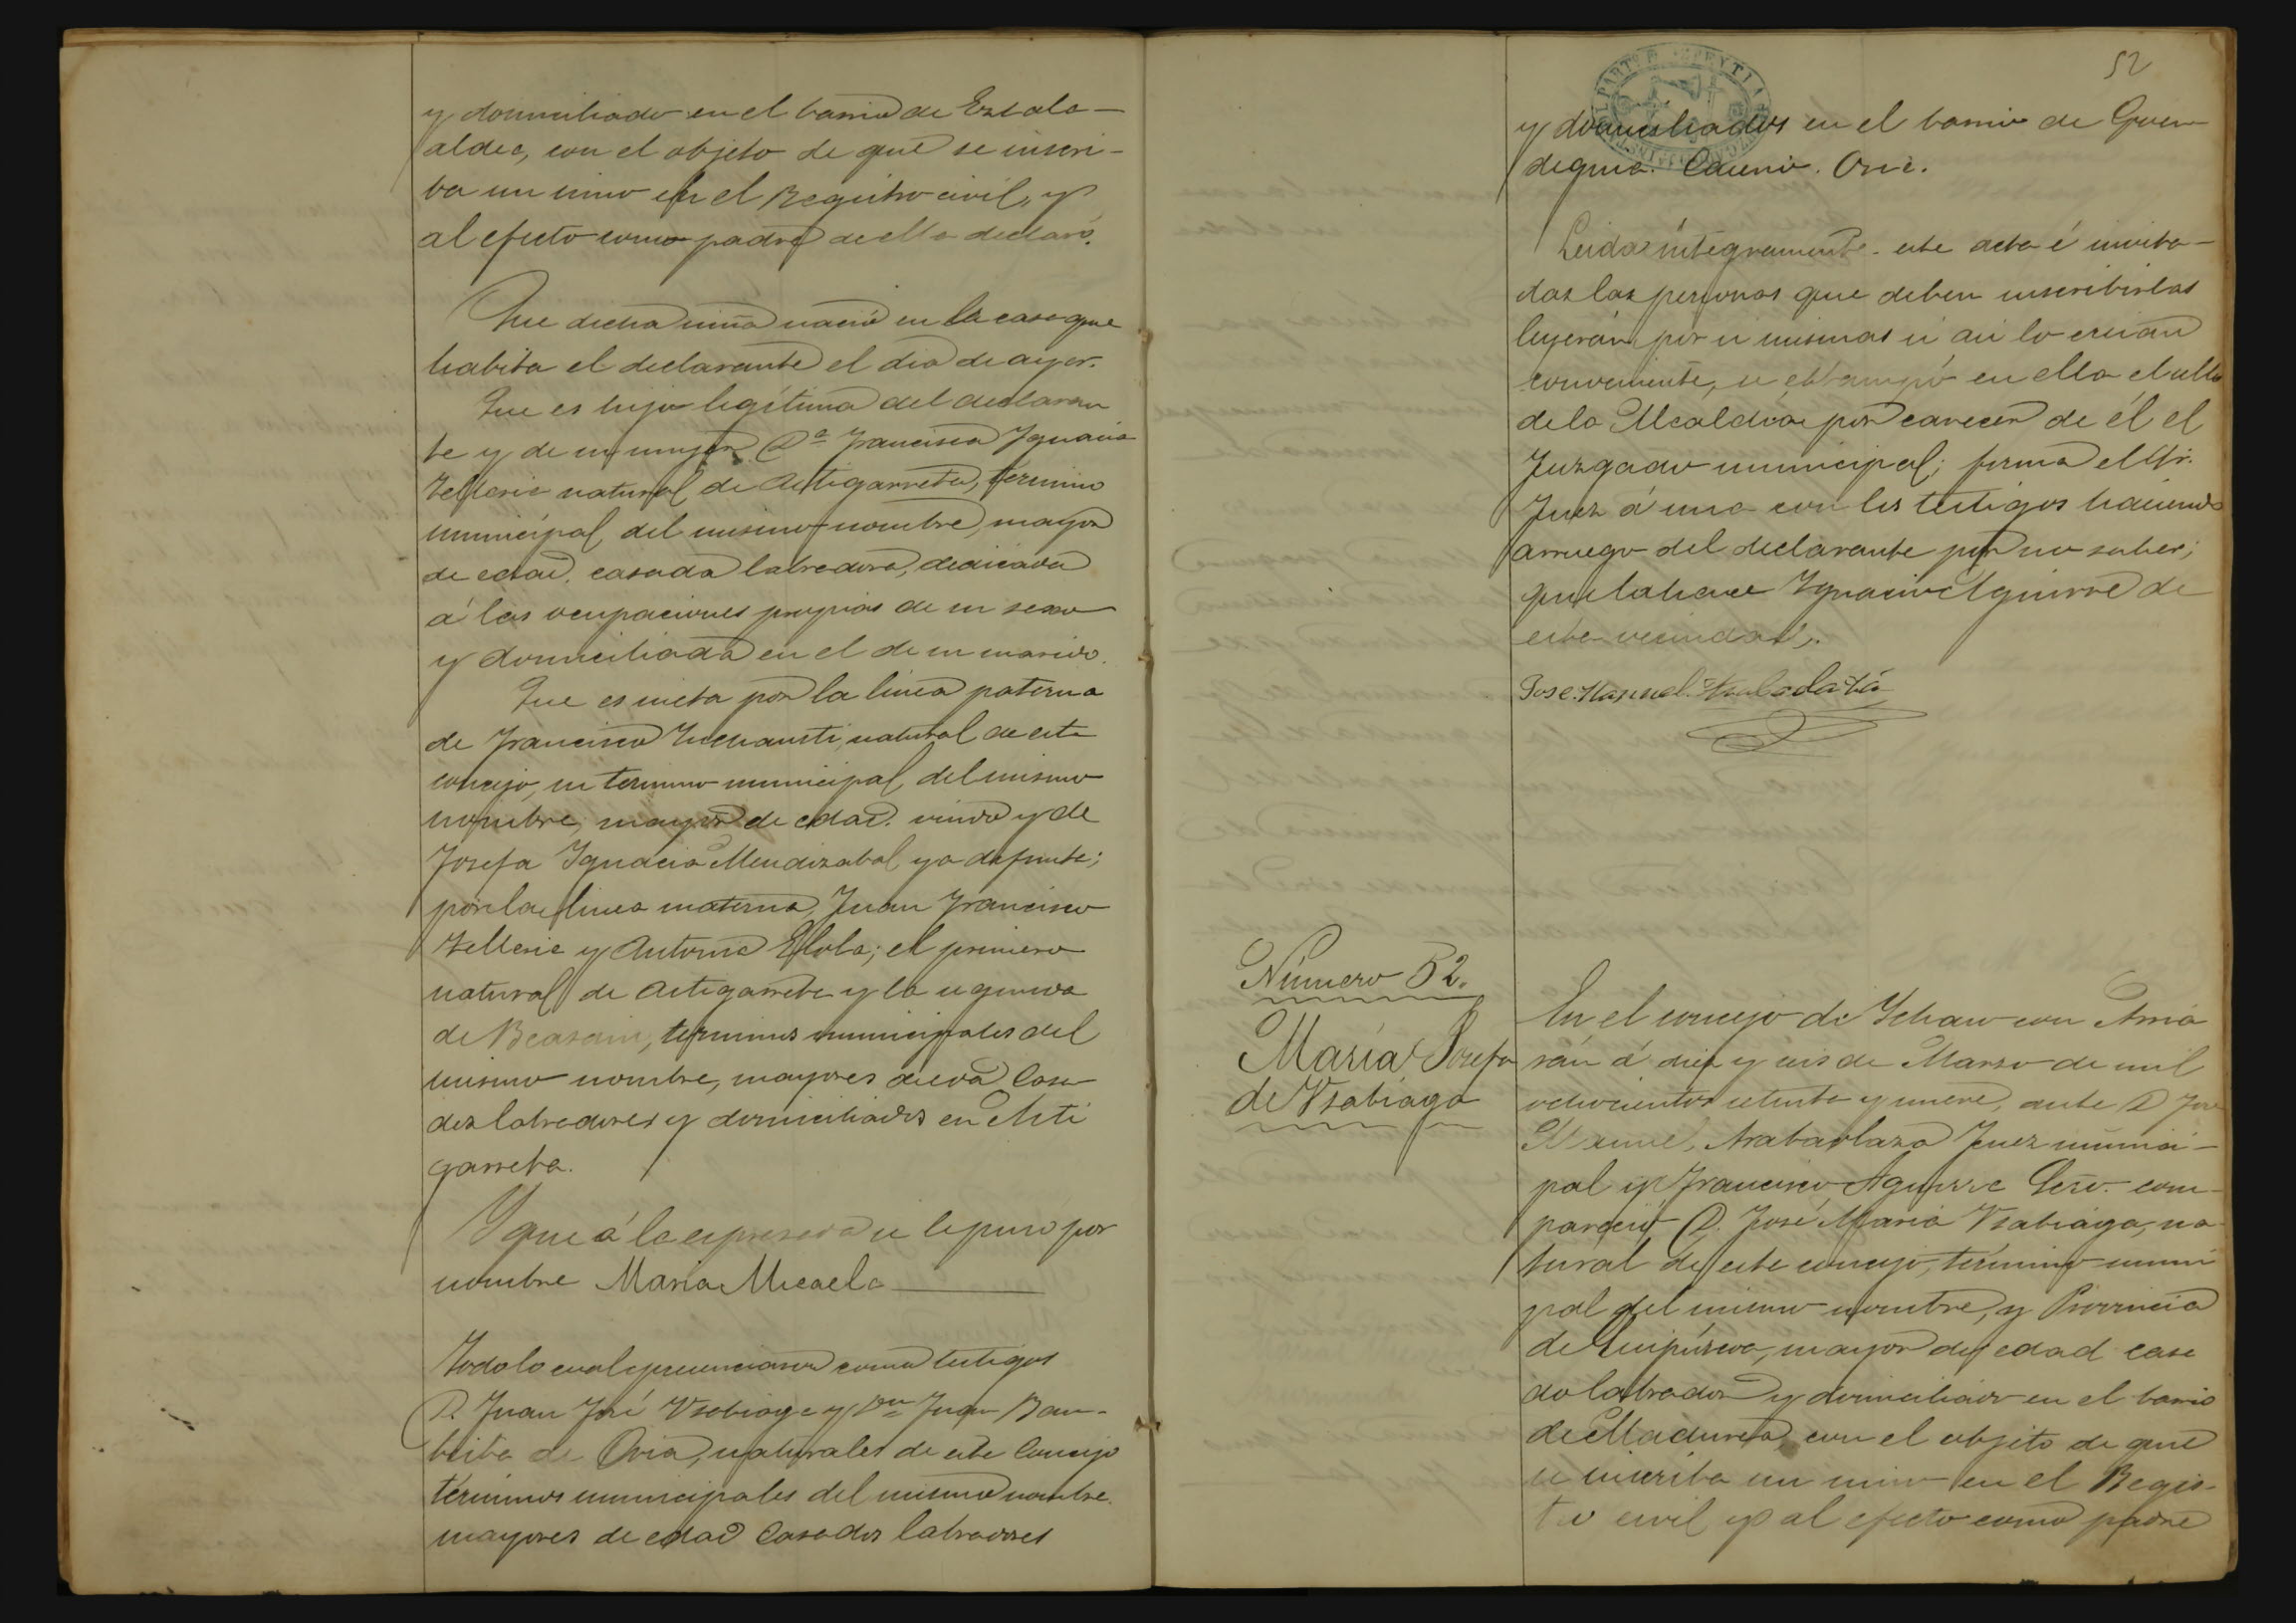 y domiciliado en el barrio de Ezcala-
aldea, con el objeto de que se inscri-
ba un nino en el Registro civil, y
al efecto como padre de ella declaró.
Que dicha niña nació en la casa que
habita el declarante el dia de ayer.
Que es hija legítima del declaran
te y de su mujer Dª Francisca Ygnacia
Telleria natural de Astigarreta, termino
municipal del mismo nombre, mayor
de edad, casada labradora, dedicada
á las ocupaciones propias de su sexo
y domiciliada en el de su marido.
Que es nieta por la linea paterna
de Francisco Ynchausti, natural de este
concejo, su termino municipal del mismo
nombre, mayor de edad. viudo y de
Josefa Ygnacia Mendizabal ya difunta;
por la linea materna, Juan Francisco
Telleria y Antonia Elola; el primero
natural de Astigarreta y la segunda
de Beasain, terminos municipales del
mismo nombre, mayores de edad Casa-
dos labradores y domiciliados en Asti
garreta.
Y que á la expresada se le puso por
nombre Maria Micaela
Todo lo cual presenciaron como testigos
D. Juan José Usabiaga y Dn Juan Bau-
tista de Oria, naturales de este Concejo
términos municipales del mismo nombre.
mayores de edad Casados labradores
52
y domiciliados en el barrio de
Leida íntegramente este acta é invita-
das las personas que deben inscribirlas
leyeran por si mismas si asi lo creian
conveniente, se estampó en ella el sello
de la Alcaldia por carecer de él el
Juzgado municipal; firma el Sr.
Juez á una con los testigos haciendo
arruego del declarante por no saber;
que lo hace Ygnacio Aguirre de
esta vecindad.
Jose Manuel
Número 52.
María Josefa
de Usabiaga
En el concejo de Ichaso con Arria
rán á diez y seis de Marzo de mil
ochocientos setenta y nueve, ante D José
Manuel Arabaolaza Juez munici-
pal y Francisco Aguirre Secro. com-
pareció D. José Maria Usabiaga, na
tural de este concejo, término muni
pal del mismo nombre, y Provincia
de Guipúzcoa, mayor de edad casa
do labrador y domiciliado en el barrio
de con el objeto de que
se inscriba un nino en el Regis-
tro civil y al efecto como padre